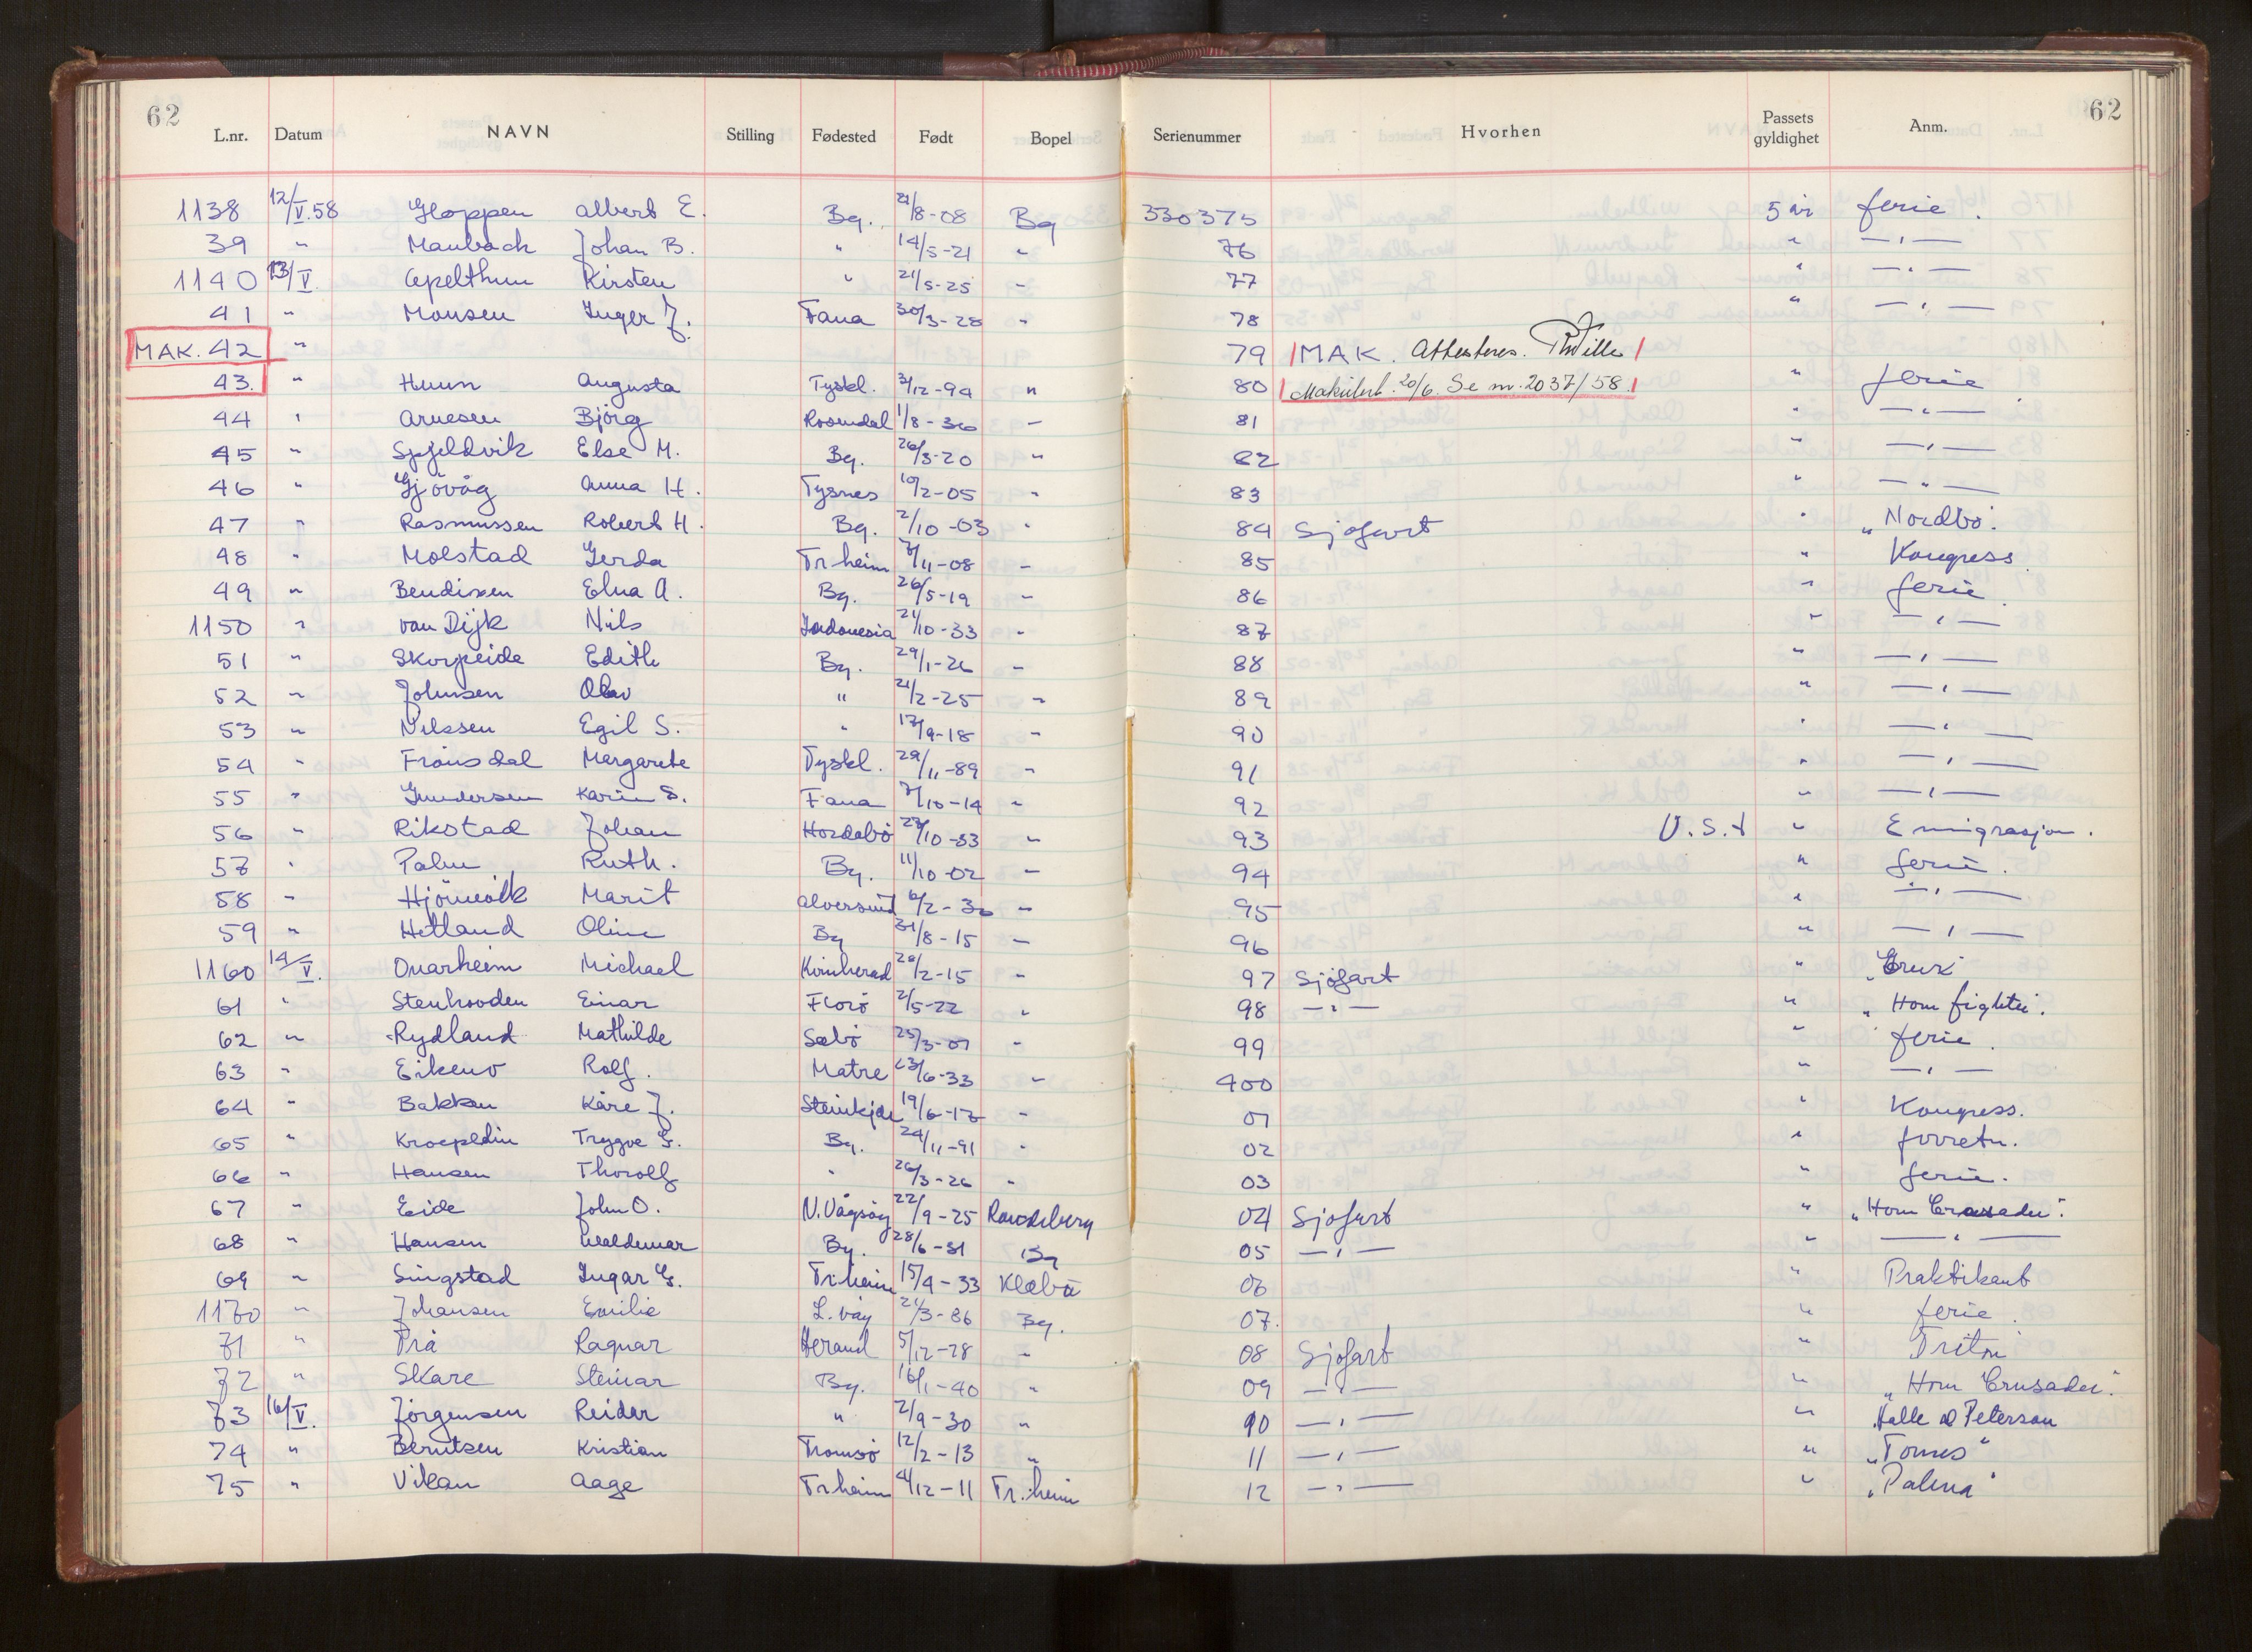 62 62
L.nr. Datum NAVN Stilling Fødested Født Bopel Serienummer Hvorhen Passets gyldighet Anm.
1138 12/V.58 Hoppen Albert E. Bg. 21/8-08 Bg 330375 5 år ferie.
39 " Maubach Johan B. " 14/5-21 " 76 " — " —
1140 13/V. Apelthun Kirsten " 21/5-25 - 77 " — " —
41 " Monsen Inger J. Fana 30/3-28 " 78 " — " —
MAK. 42 " 79 MAK. Attesteres.
43. " Huun Augusta Tyskl. /12-94 " 80 Makulert. 20/6. Se nr. 2037/58. " ferie
44 " Arnesen Björg Rosendal 1/8-36 - 81 " — " —
45 " Spjeldvik Else M. Bg. 26/3-20 " 82 " — " —
46 " Gjövåg Anna H. Tysnes 10/2-05 " 83 " — " —
47 " Rasmussen Robert H. Bg. 2/10-03 " 84 Sjøfart " "Nordbo".
48 " Molstad Gerda Tr.heim /11-08 - 85 " Kongress.
49 " Bendixen Elna A. Bg. 26/5-19 - 86 " ferie.
1150 " van Dijk Nils Indonesia 21/10-33 " 87 " — " —
51 " Skorpeide Edith Bg. 29/1-26 - 88 " — " —
52 " Johnsen Olav " 21/2-25 - 89 " — " —
53 " Nilssen Egil S. " 17/9-18 - 90 " — " —
54 " Frönsdal Margarete Tyskl. 29/11-89 - 91 " — " —
55 " Gundersen Karin S. Fana 7/10-14 - 92 " — " —
56 " Rikstad Johan Hordabö 27/10-33 " 93 U.S.A " Emigrasjon.
57 " Palm Ruth. Bg. 11/10-02 - 94 " ferie.
58 - Hjörnevik Marit Alversund 6/2-30 - 95 " — " —
59 " Hetland Oline Bg 31/8-15 - 96 " — " —
1160 14/V. Onarheim Michael Kvinherad 28/2-15 " 97 Sjøfart "
61 " Stenhovden Einar Florö 2/5-22 " 98 — " — " "Horn fighter".
62 " Rydland Mathilde Sæbö 25/3-07 - 99 " ferie.
63 " Eikemo Rolf. Matre 23/6-33 - 400 " — " —
64 " Bakken Kåre J. Steinkjer 19/6-17 - 01 " Kongress.
65 " Kroepelin Trygve G. Bg. 24/11-91 " 02 " forretn.
66 " Hansen Thorolf " 26/3-26 " 03 " ferie.
67 " Eide John O. N.Vågsöy 22/9-25 Raudeberg 04 Sjøfart " "Horn Crusader".
68 " Hansen Waldemar Bg. 28/6-31 Bg 05 — " — " — " —
69 " Singstad Ingar G. Tr.heim 15/4-33 Klæbu 06 " Praktikant
1170 " Johansen Emilie L.våg 21/3-86 Bg. 07. " ferie.
71 " Trå Ragnar Herand 5/12-28 " 08 Sjøfart " Triton
72 " Skare Steinar Bg. 16/1-40 " 09 — " — " "Horn Crusader".
73 16/V. Jörgensen Reidar " 2/9-30 " 10 — " — " "Kalle & Peterson
74 " Berntsen Kristian Tromsö 12/2-13 " 11 — " — " "Tomes"
75 " Vikan Aage Tr.heim 4/12-11 Tr.heim 12 — " — " "Palma"